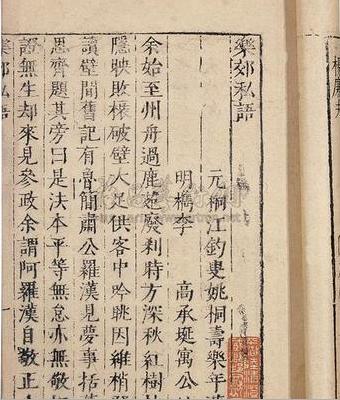 樂郊私語
元桐江釣叟姚桐壽樂年
明檇李 高承埏寓公
余始至州舟過鹿苑廢刹時方深秋紅樹
隱映敗椽破壁大足供客中吟眺因維梢登
讀壁間舊記有魯簡肅公羅漢見夢事括
思齊題其旁曰是法本平等無怠亦無敬
證無生却來見參政余謂阿羅漢自敬正
樂郊私語